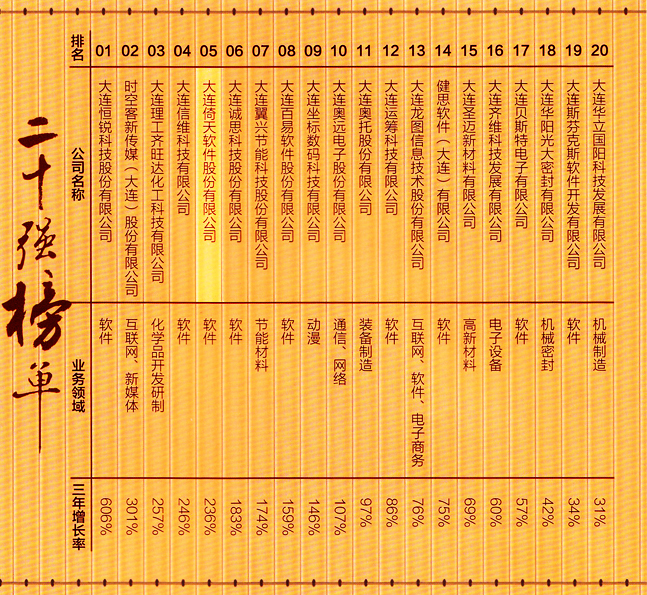 二十强榜单
排名 公司名称 业务领域 三年增长率
01 大连恒锐科技股份有限公司 软件 606%
02 时空客新传媒（大连）股份有限公司 互联网、新媒体 301%
03 大连理工齐旺达化工科技有限公司 化学品开发研制 257%
04 大连信维科技有限公司 软件 246%
05 大连倚天软件股份有限公司 软件 236%
06 大连诚思科技股份有限公司 软件 183%
07 大连翼兴节能科技股份有限公司 节能材料 174%
08 大连百易软件股份有限公司 软件 159%
09 大连坐标数码科技有限公司 动漫 146%
10 大连奥远电子股份有限公司 通信、网络 107%
11 大连奥托股份有限公司 装备制造 97%
12 大连运筹科技有限公司 软件 86%
13 大连龙图信息技术股份有限公司 互联网、软件、电子商务 76%
14 健思软件（大连）有限公司 软件 75%
15 大连圣迈新材料有限公司 高新材料 69%
16 大连齐维科技发展有限公司 电子设备 60%
17 大连贝斯特电子有限公司 软件 57%
18 大连华阳光大密封有限公司 机械密封 42%
19 大连斯芬克斯软件开发有限公司 软件 34%
20 大连华立国阳科技发展有限公司 机械制造 31%